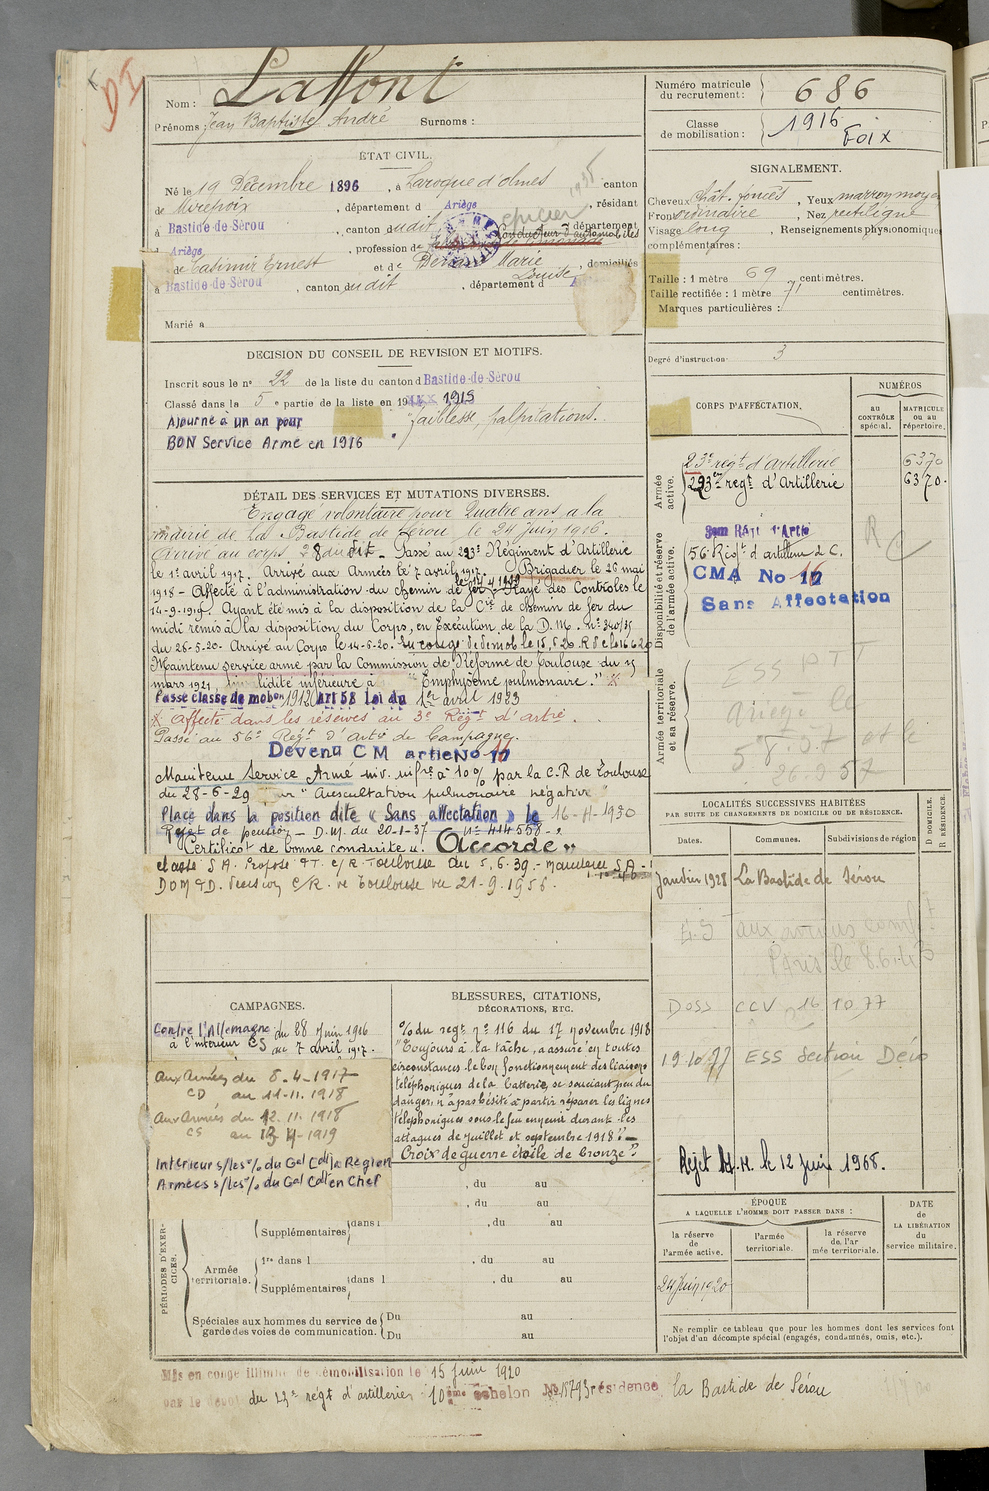 Nom : Laffont
Prénoms Jean Baptiste André Surnoms :
Numéro matricule du recrutement : 686
Classe de mobilisation : 1916 Foix
ÉTAT CIVIL.
Né le 19 Décembre 1896, à Laroque d'olmes canton
de Mirepoix, département d Ariège, résidant
à Bastide-de-Sérou, canton dudit, département
d Ariège, profession de Conducteur d'automobiles épicier
de Casimir Ernest et de Marie Louise, domiciliés
à Bastide-de-Sérou, canton dudit, département d
Marié à
SIGNALEMENT.
Cheveux chât. foncés, Yeux marron moyen
Front ordinaire, Nez rectiligne
Visage long, Renseignements physionomiques
complémentaires :
Taille : 1 mètre 69 centimètres.
Taille rectifiée : 1 mètre 71 centimètres.
Marques particulières :
Degré d'instruction 3
DÉCISION DU CONSEIL DE REVISION ET MOTIFS.
Inscrit sous le n° 22 de la liste du canton d Bastide-de-Sérou
Classé dans la 5e partie de la liste en 1915
Ajourné à un an pour faiblesse, palpitations.
BON Service Armé en 1916
CORPS D'AFFECTATION.
NUMÉROS
au CONTRÔLE spécial.
MATRICULE ou au répertoire.
Armée active.
23e regt d'artillerie 6370
293e regt d'Artillerie 6370.
Disponibilité et réserve de l'armée active.
56e Regt d'artillerie d C.
CMA No 17
Sans Affectation
R C
Armée territoriale et sa réserve.
ESS PTT
Ariège le
DÉTAIL DES SERVICES ET MUTATIONS DIVERSES.
Engagé volontaire pour quatre ans à la
mairie de La Bastide de Sérou le 24 Juin 1916.
Arrivé au corps 28 dudit. Passé au 293e Régiment d'Artillerie
le 1er avril 1917. Arrivé aux Armées le 7 avril 1917. Brigadier le 26 mai
1918 - Affecté à l'administration du chemin de fer Rayé des Contrôles le
14-9-1919. Ayant été mis à la disposition de la Cie de chemin de fer du
midi remis à la disposition du Corps, en Exécution de la D.M. n°
du 26-5-20. Arrivé au Corps le 14-6-20. En congé de démob le 15.6.20
Maintenu service armé par la Commission de Réforme de Toulouse du 15
mars 1921, invalidité inférieure à "Emphysème pulmonaire."
Passé classe de mobon 1912 Art 58 Loi du 1er avril 1923
Affecté dans les réserves au 3e Régt d'artie.
Passé au 56e Régt d'artie de Campagne.
Devenu C M artie No 17
Maintenu Service Armé inv. infre à 10% par la C.R de Toulouse
du 28-6-29 pour "Auscultation pulmonaire négative"
Placé dans la position dite « Sans affectation » le 16-4-1930
Rejet de pension - D.M. du 20-1-37 n° 414558
Certificat de bonne conduite : Accordé
Classé S A. Proposé P.T. C/R Toulouse du 5.6.39 - maintenu S A
C/R. de Toulouse du 21-9.1956.
LOCALITÉS SUCCESSIVES HABITÉES
PAR SUITE DE CHANGEMENTS DE DOMICILE OU DE RÉSIDENCE.
Dates. Communes. Subdivisions de région
D DOMICILE. R RÉSIDENCE.
Janvier 1928 La Bastide de Sérou
Paris le
Doss CCV n 16 10.77
19.10.77 ESS Section
Rejet M.M. le 12 juin 1968.
CAMPAGNES.
Contre l'Allemagne du 28 Juin 1916
à l'intérieur CS au 7 avril 1917.
Aux Armées du 8-4-1917
CD au 11-11-1918
Aux Armées du 12.11.1918
CS
Intérieur s/les % du Gal Cdt la Région
Armées s/les % du Gal Cdt en Chef
BLESSURES, CITATIONS,
DÉCORATIONS, ETC.
% du regt n° 116 du 17 novembre 1918
"Toujours à la tâche, a assuré en toutes
circonstances le bon fonctionnement des liaisons
téléphoniques de la batterie, se souciant peu du
danger, n'a pas hésité à partir réparer les lignes
téléphoniques sous le feu ennemi durant les
attaques de juillet et septembre 1918"
Croix de guerre étoile de bronze
PÉRIODES D'EXERCICES.
, du au
, du au
Supplémentaires dans l , du au
Armée territoriale.
1re dans l , du au
Supplémentaires dans l , du au
Spéciales aux hommes du service de garde des voies de communication.
Du au
Du au
ÉPOQUE
A LAQUELLE L'HOMME DOIT PASSER DANS :
la réserve de l'armée active.
l'armée territoriale.
la réserve de l'armée territoriale.
DATE de LA LIBÉRATION du service militaire.
24 Juin 1920
Ne remplir ce tableau que pour les hommes dont les services font
l'objet d'un décompte spécial (engagés, condamnés, omis, etc.).
Mis en congé illimité de démobilisation le 15 Juin 1920
par le dépôt du 23e régt d'artillerie, 10ème échelon No 15793 résidence la Bastide de Sérou